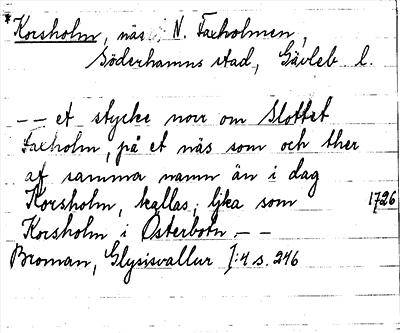 *Korsholm, näs, N. Faxholmen,
Söderhamns stad, Gävleb. l.
-- et stycke norr om Slottet
Faxholm, på et näs som och ther
af samma namn än i dag
Korsholm, kallas, lika som 1726
Korsholm i Österbotn. --
Broman, Glysisvallur I:4 s. 246